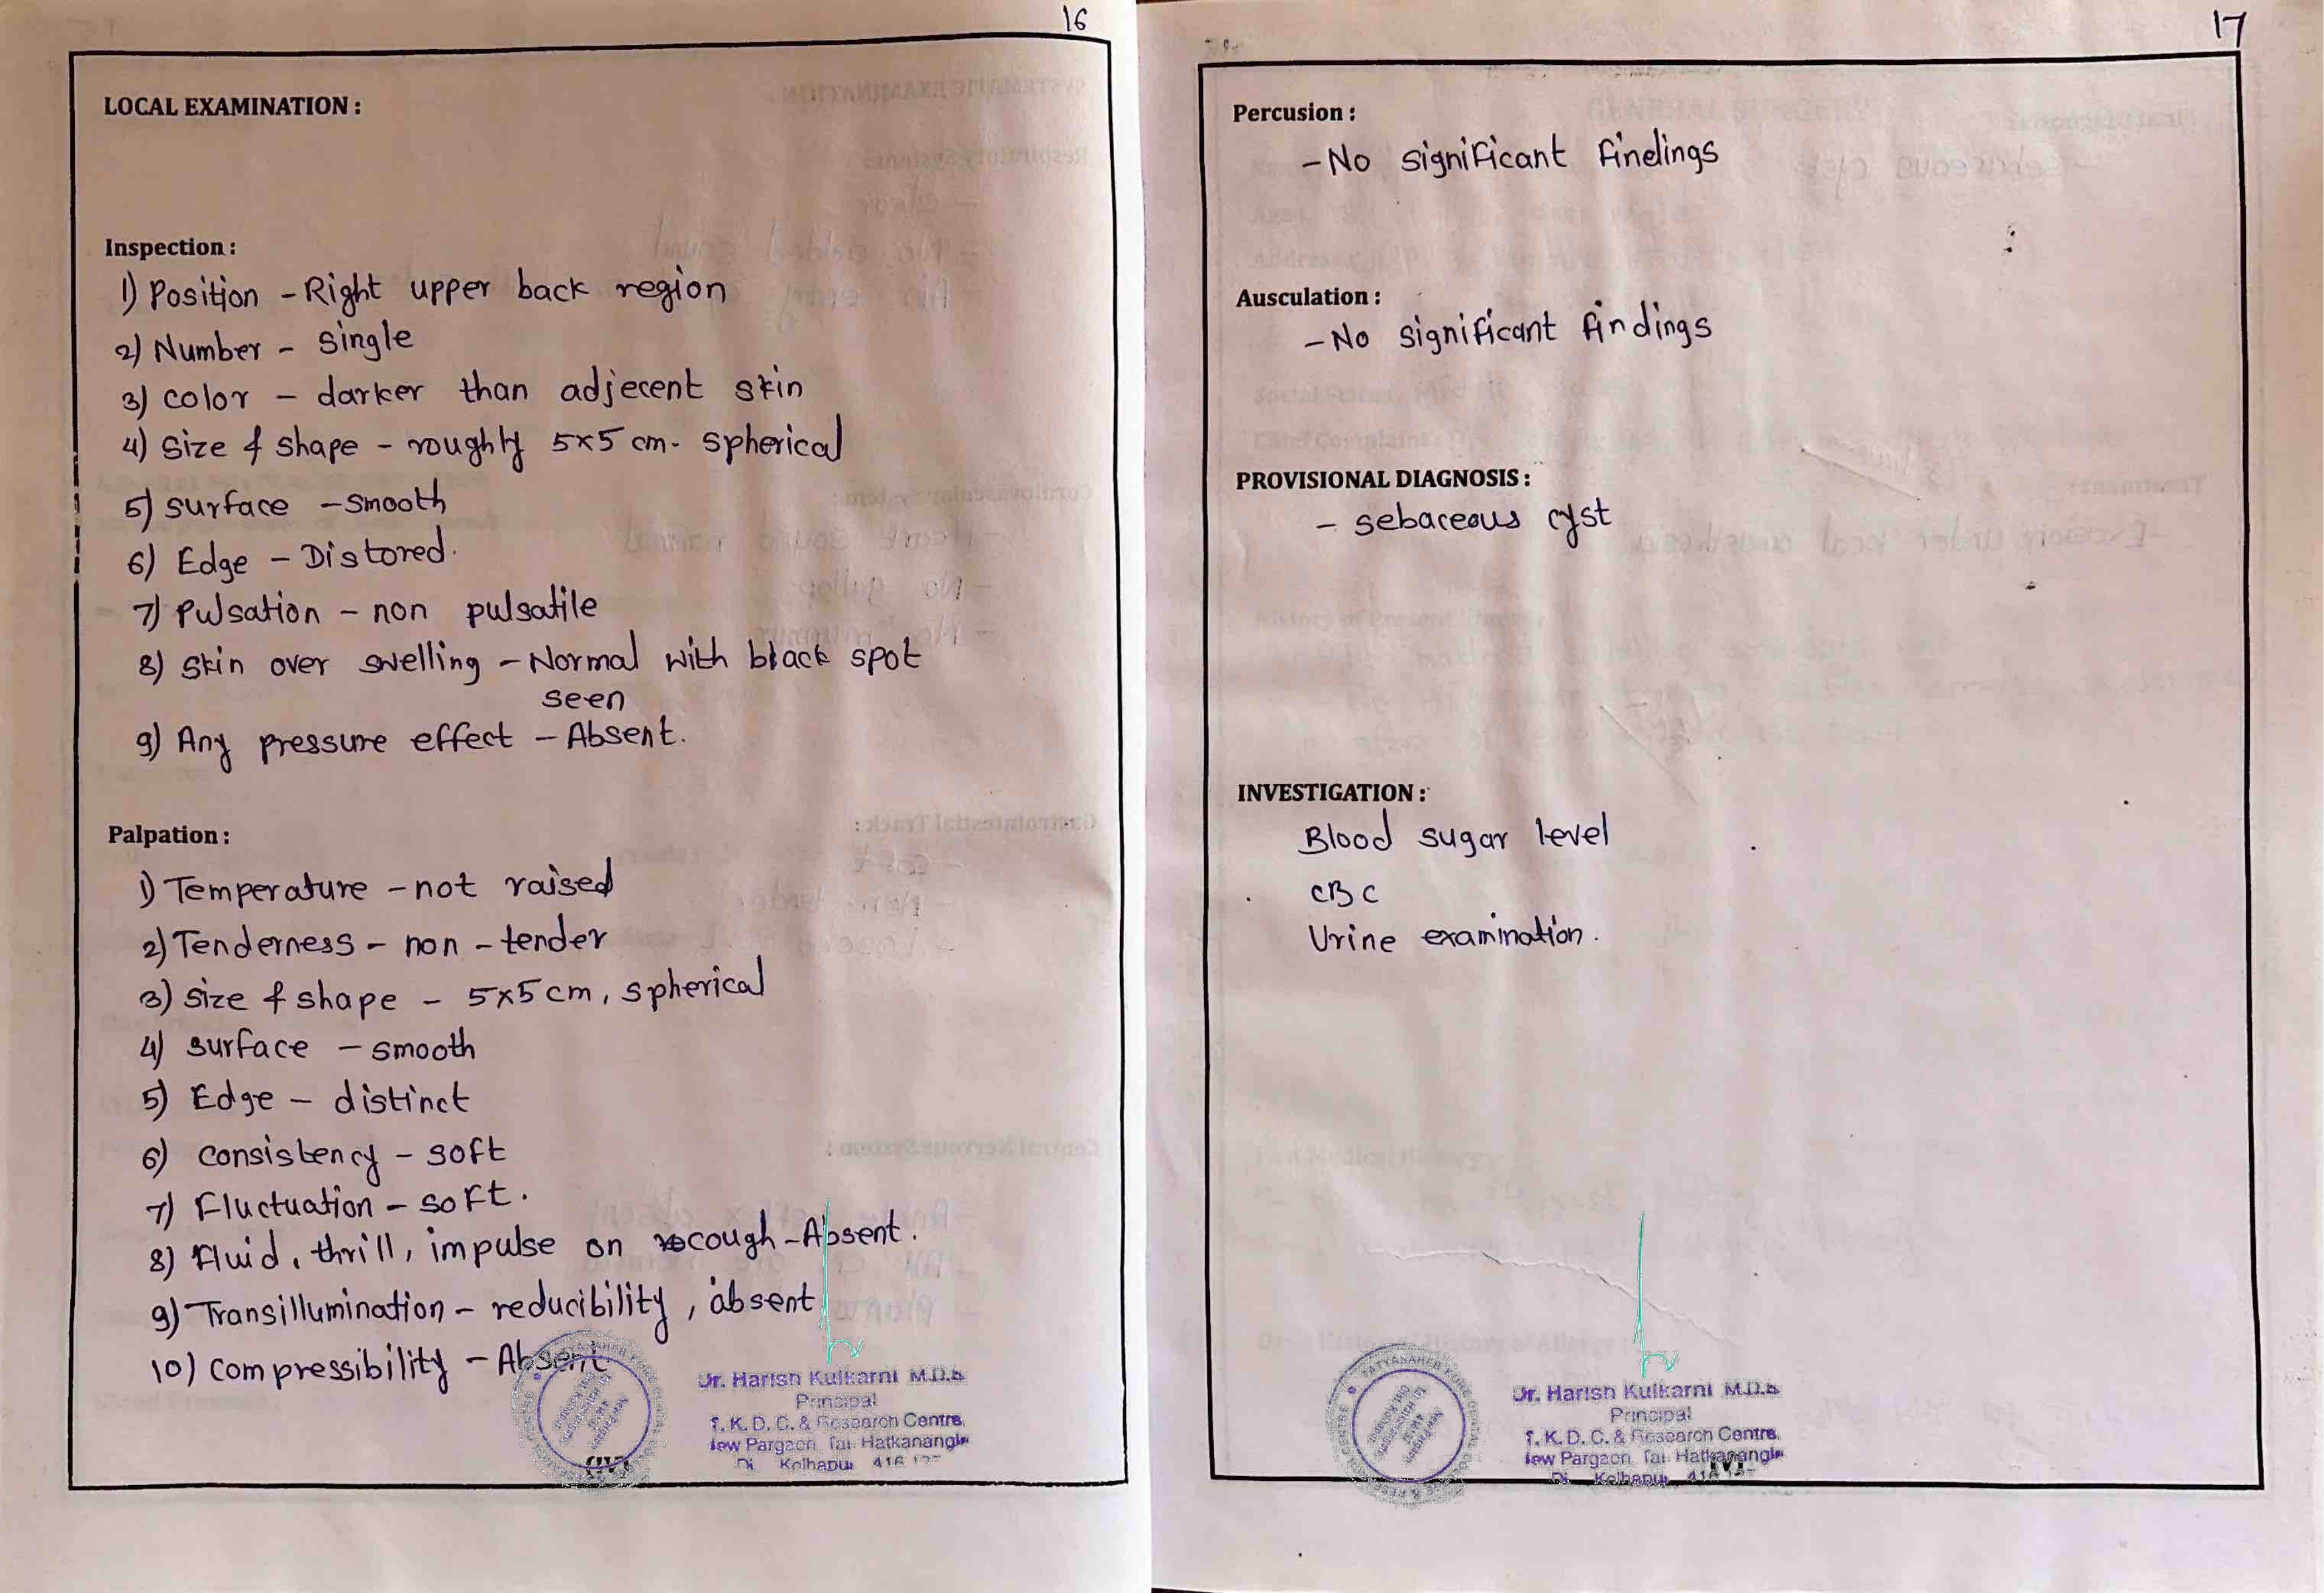 16
LOCAL EXAMINATION :
Inspection :
1) Position - Right upper back region
2) Number - Single
3) color - darker than adjecent skin
4) Size & shape - roughly 5x5 cm. spherical
5) surface - smooth
6) Edge - Distored.
7) Pulsation - non pulsatile
8) Skin over swelling - Normal with black spot
seen
9) Any pressure effect - Absent.
Palpation :
1) Temperature - not raised
2) Tenderness - non - tender
3) size & shape - 5x5 cm, spherical
4) surface - smooth
5) Edge - distinct
6) consistency - soft
7) Fluctuation - soft.
8) Fluid, thrill, impulse on cough - Absent.
9) Transillumination - reducibility, absent
10) compressibility - Absent
Dr. Harish Kulkarni M.D.S
Principal
T. K. D. C. & Research Centre,
New Pargaon, Tal. Hatkanangle
Di. Kolhapur 416
17
Percusion :
- No significant findings
Ausculation :
- No significant findings
PROVISIONAL DIAGNOSIS :
- sebaceous cyst
INVESTIGATION :
Blood sugar level
CBC
Urine examination.
TATYASAHEB KORE DENTAL
Dr. Harish Kulkarni M.D.S
Principal
T. K. D. C. & Research Centre,
New Pargaon, Tal. Hatkanangle
Di. Kolhapur 416